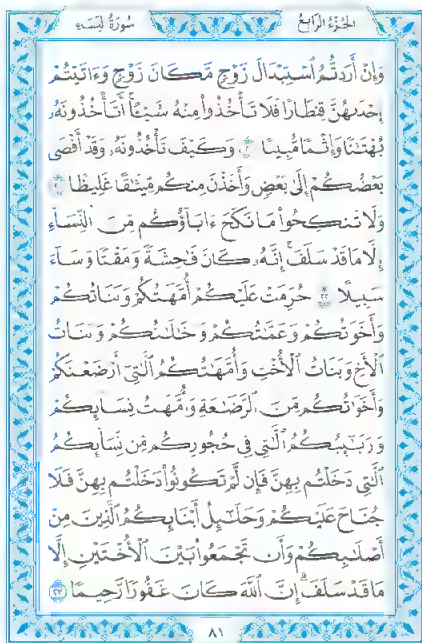 سُورَةُ النِّسَاءِ
الجُزْءُ الرَّابِعُ
وَإِنْ أَرَدتُّمُ ٱسْتِبْدَالَ زَوْجٍ مَّكَانَ زَوْجٍ وَءَاتَيْتُمْ
إِحْدَىٰهُنَّ قِنطَارًا فَلَا تَأْخُذُوا۟ مِنْهُ شَيْـًٔا أَتَأْخُذُونَهُۥ
بُهْتَٰنًا وَإِثْمًا مُّبِينًا ٢٠ وَكَيْفَ تَأْخُذُونَهُۥ وَقَدْ أَفْضَىٰ
بَعْضُكُمْ إِلَىٰ بَعْضٍ وَأَخَذْنَ مِنكُم مِّيثَٰقًا غَلِيظًا ٢١
وَلَا تَنكِحُوا۟ مَا نَكَحَ ءَابَآؤُكُم مِّنَ ٱلنِّسَآءِ
إِلَّا مَا قَدْ سَلَفَ ۚ إِنَّهُۥ كَانَ فَٰحِشَةً وَمَقْتًا وَسَآءَ
سَبِيلًا ٢٢ حُرِّمَتْ عَلَيْكُمْ أُمَّهَٰتُكُمْ وَبَنَاتُكُمْ
وَأَخَوَٰتُكُمْ وَعَمَّٰتُكُمْ وَخَٰلَٰتُكُمْ وَبَنَاتُ
ٱلْأَخِ وَبَنَاتُ ٱلْأُخْتِ وَأُمَّهَٰتُكُمُ ٱلَّٰتِىٓ أَرْضَعْنَكُمْ
وَأَخَوَٰتُكُم مِّنَ ٱلرَّضَٰعَةِ وَأُمَّهَٰتُ نِسَآئِكُمْ
وَرَبَٰٓئِبُكُمُ ٱلَّٰتِى فِى حُجُورِكُم مِّن نِّسَآئِكُمُ
ٱلَّٰتِى دَخَلْتُم بِهِنَّ فَإِن لَّمْ تَكُونُوا۟ دَخَلْتُم بِهِنَّ فَلَا
جُنَاحَ عَلَيْكُمْ وَحَلَٰٓئِلُ أَبْنَآئِكُمُ ٱلَّذِينَ مِنْ
أَصْلَٰبِكُمْ وَأَن تَجْمَعُوا۟ بَيْنَ ٱلْأُخْتَيْنِ إِلَّا
مَا قَدْ سَلَفَ ۗ إِنَّ ٱللَّهَ كَانَ غَفُورًا رَّحِيمًا ٢٣
٨١